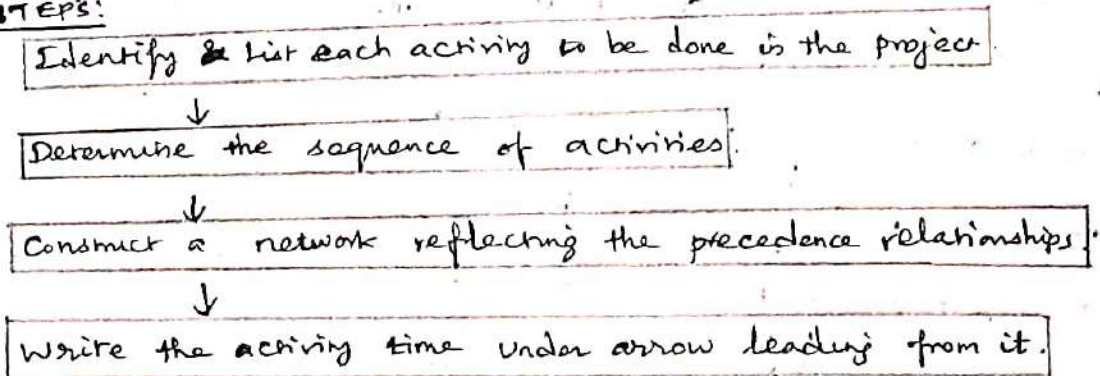 STEPS:
Identify & List each activity to be done is the project.
↓
Determine the sequence of activities.
↓
Construct a network reflecting the precedence relationships.
↓
Write the activity time under arrow leading from it.